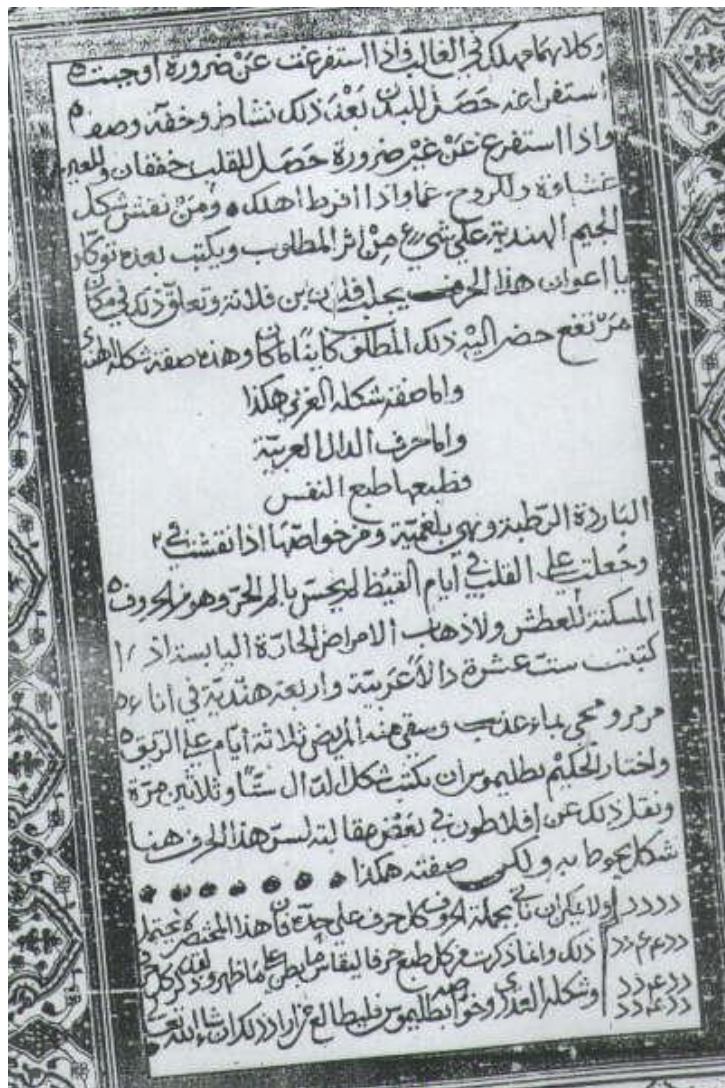 وكلاهما مهلك في الغالب فاذا استفرغت عن ضرورة اوجبت
استفراغه حصل للبدن بعد ذلك نشاط وخفة وصف
واذا استفرغ عن غير ضرورة حصل للقلب خفقان وللعين
غشاوة وللروح غما واذا افرط اهلك ومن نقش شكل
الجيم الهندية على شيء من اثر المطلوب ويكتب بعده توكل
يا اعوان هذا الحرف بجلب فلان بن فلانة وتعلق ذلك في مكان
مرتفع حضر اليه ذلك المطلوب كاينا ما كان وهذه صفة شكله
واما صفة شكله العربي هكذا
واما حرف الدال العربية
فطبعها طبع النفس
الباردة الرطبة وهي بلغمية ومن خواصها اذا نقشت في
وجعلت على القلب في ايام القيظ لم يحس بالم الحر وهو من الحروف
المسكنة للعطش ولاذهاب الامراض الحارة اليابسة اذا
كتبت ست عشرة دالا عربية واربعة هندية في اناء
مرمر ومحي بماء عذب وسقي منه المريض ثلاثة ايام على الريق
واختار الحكيم بطليموس ان يكتب شكل الدال ستا وثلاثين مرة
ونقل ذلك عن افلاطون في بعض مقالته ليس هذا الحرف هنا
شكل يحوط به ولكن صفته هكذا
د د د د ولا يمكن ان ناتي بجملة الحروف كل حرف على حدته فان هذا المختصر
د د ع ع د د ذلك وانما ذكرت من كل طبع حرفا ليقاس ما بطن على ما ظهر
د د ع د د وشكله العددي وخواصه بطليموس فليطالع من اراد ذلك ان شاء الله تعالى
د د ع د د